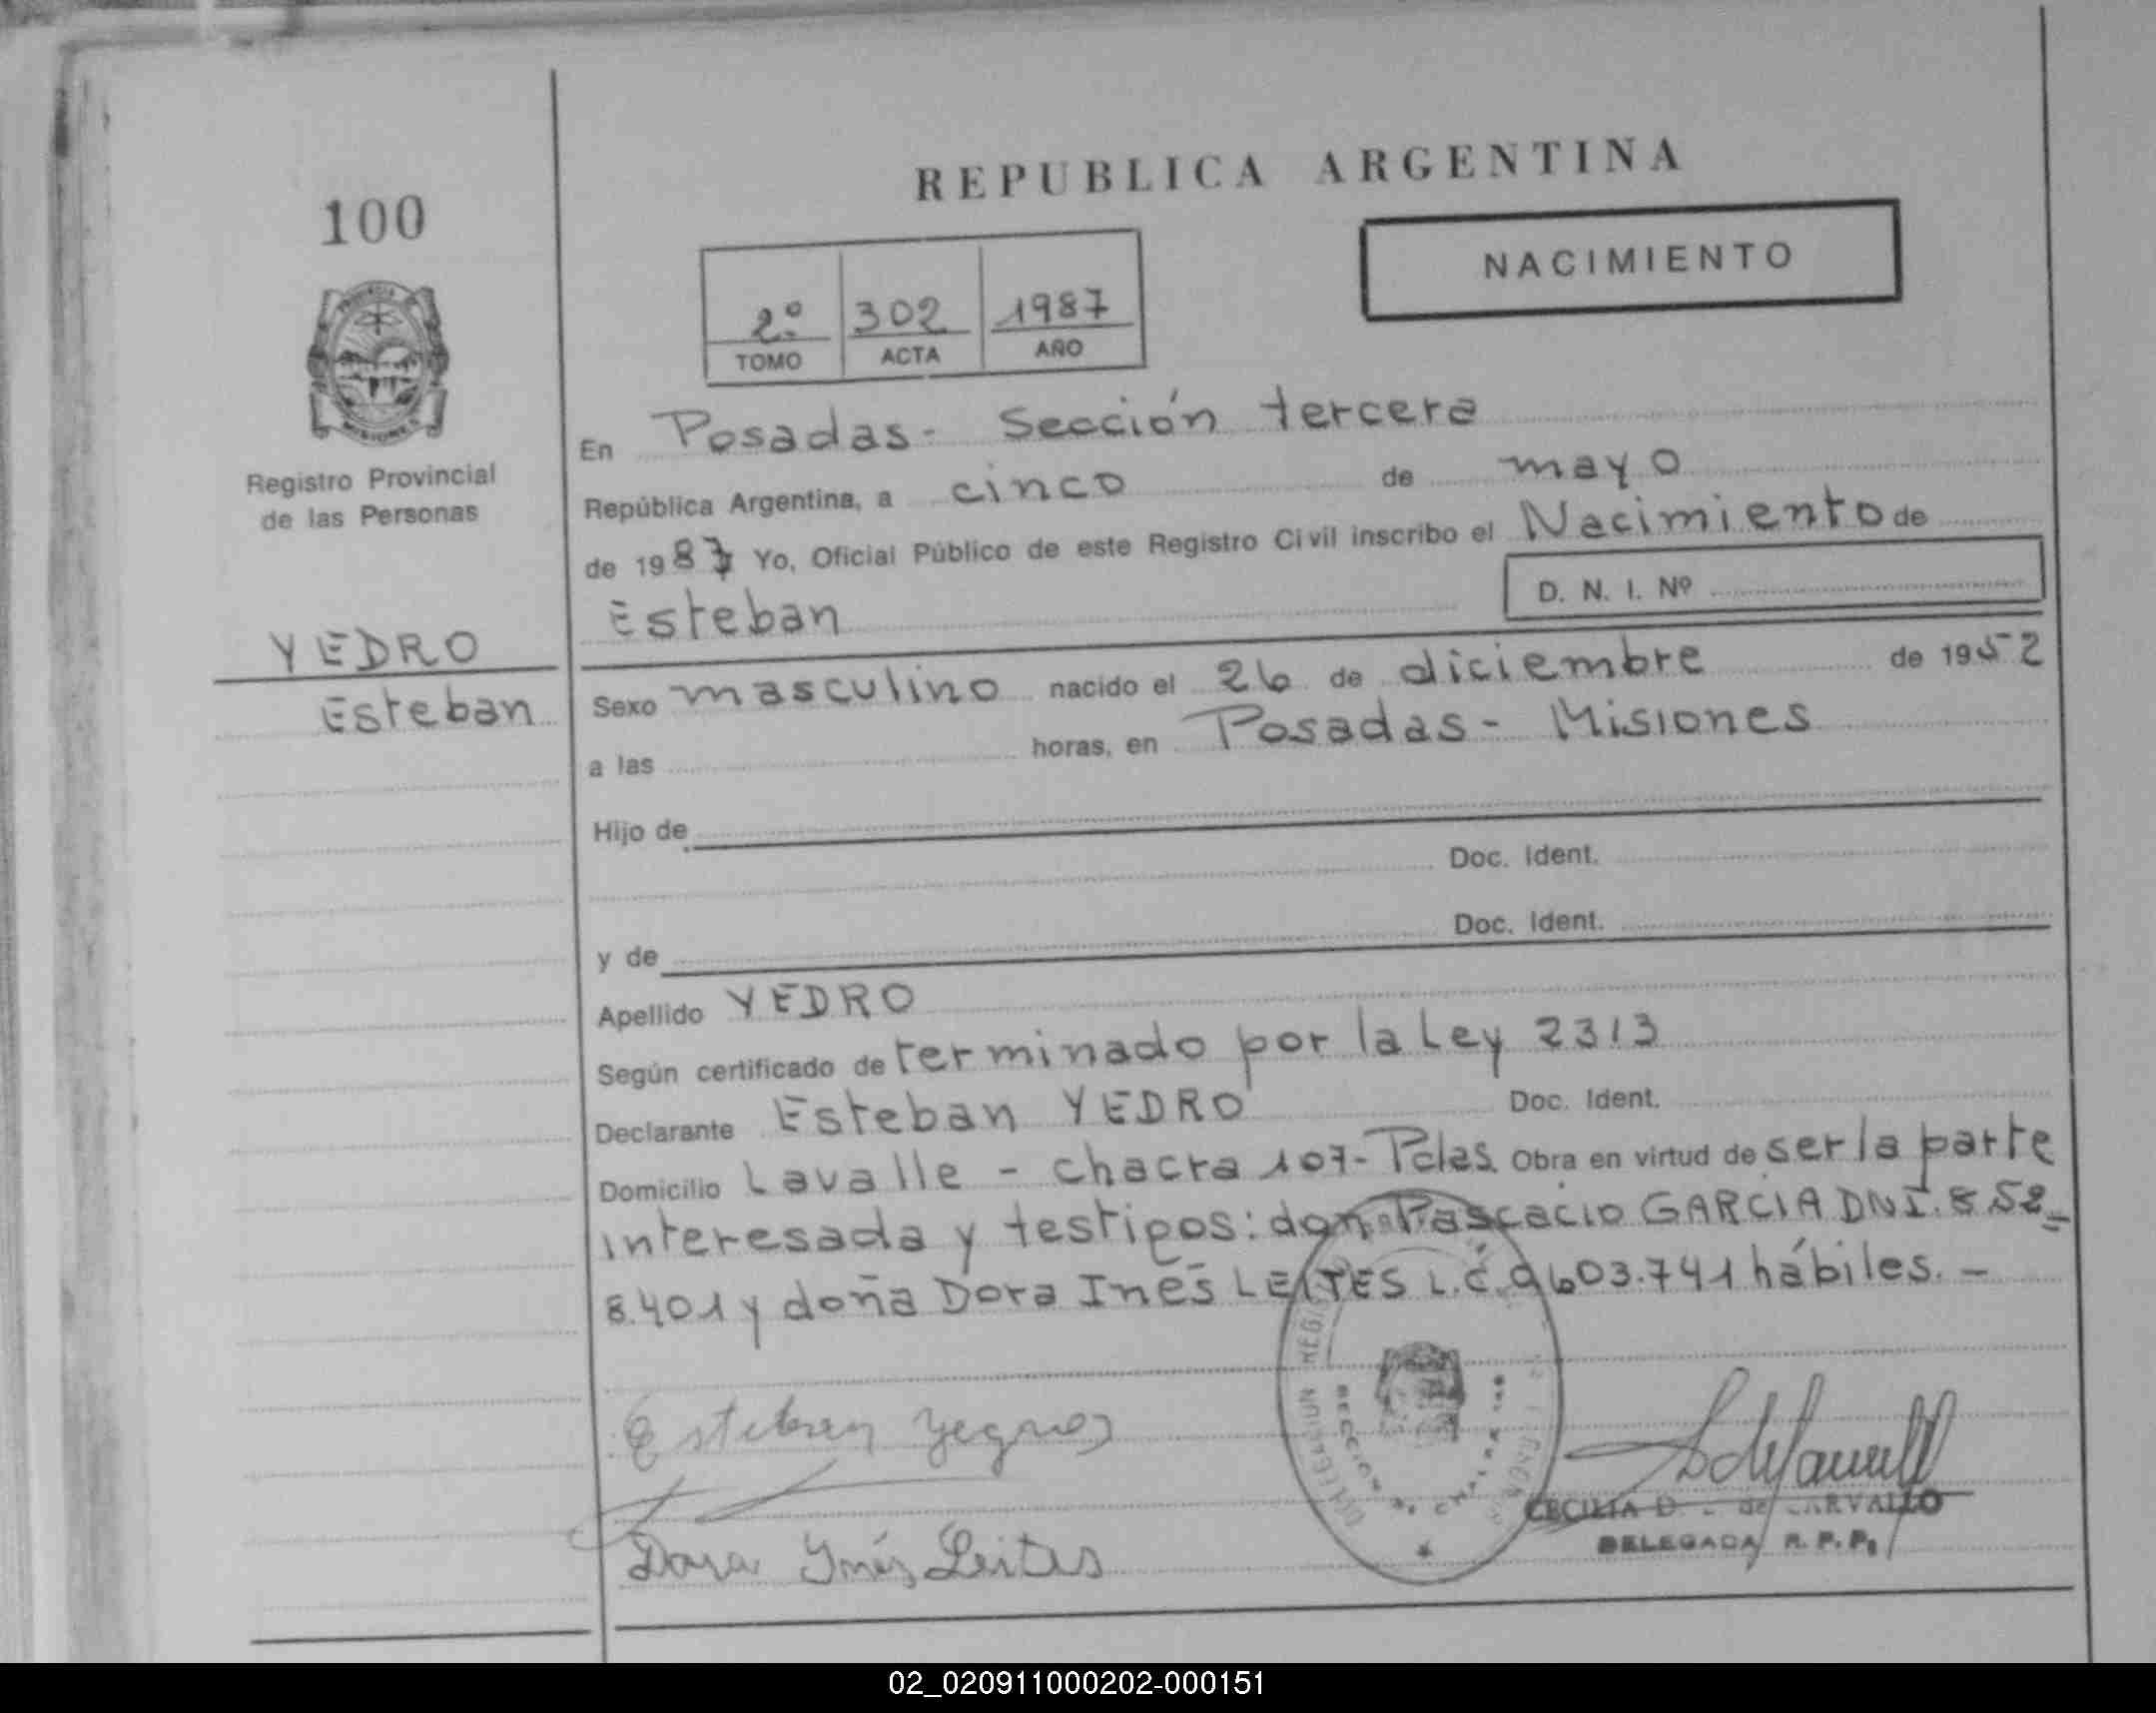 REPUBLICA ARGENTINA
100
NACIMIENTO
2º 302 1987
TOMO ACTA AÑO
En Posadas- Sección tercera
Registro Provincial
de las Personas
República Argentina, a cinco de mayo
de 1987 Yo, Oficial Público de este Registro Civil inscribo el Nacimiento de
D. N. I. Nº
Esteban
YEDRO
Esteban
Sexo masculino nacido el 26 de diciembre de 1952
a las horas, en Posadas- Misiones
Hijo de
Doc. Ident.
y de Doc. Ident.
Apellido YEDRO
Según certificado de terminado por la Ley 2313
Declarante Esteban YEDRO Doc. Ident.
Domicilio Lavalle - chacra 107- Pdas. Obra en virtud de ser la parte
interesada y testigos: don Pascacio GARCIA DNI. 8.58_
8.401 y doña Dora Inés LEITES L.C. 9603.741 hábiles. -
Esteban
Dora Inés Leites
CECILIA de CARVALLO
DELEGADA R. P. P.
02_020911000202-000151